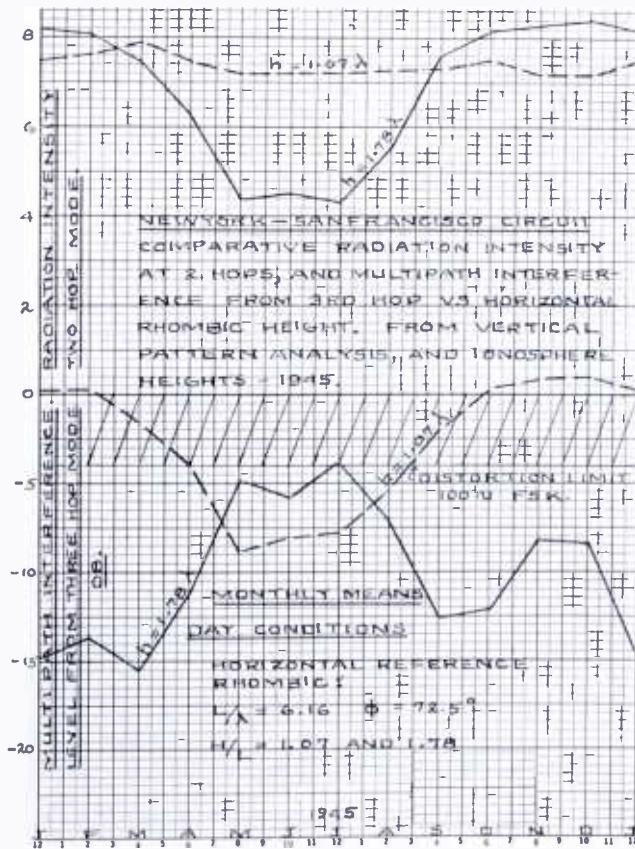 8
6
4
2
0
-5
-10
-15
-20
RADIATION INTENSITY
TWO HOP MODE.
MULTIPATH INTERFERENCE
LEVEL FROM THREE HOP MODE
DB.
h=1.07λ
h=1.78λ
NEWYORK-SANFRANCISCO CIRCUIT
COMPARATIVE RADIATION INTENSITY
AT 2 HOPS, AND MULTIPATH INTERFER-
ENCE FROM 3RD HOP VS HORIZONTAL
RHOMBIC HEIGHT. FROM VERTICAL
PATTERN ANALYSIS, AND IONOSPHERE
HEIGHTS - 1945.
h=1.07λ
DISTORTION LIMIT
100'U FSK.
h=1.78λ
MONTHLY MEANS
DAY CONDITIONS
HORIZONTAL REFERENCE
RHOMBIC:
L/λ = 6.16 Φ = 72.5°
H/L = 1.07 AND 1.78
J F M A M J J A S O N D J
1945